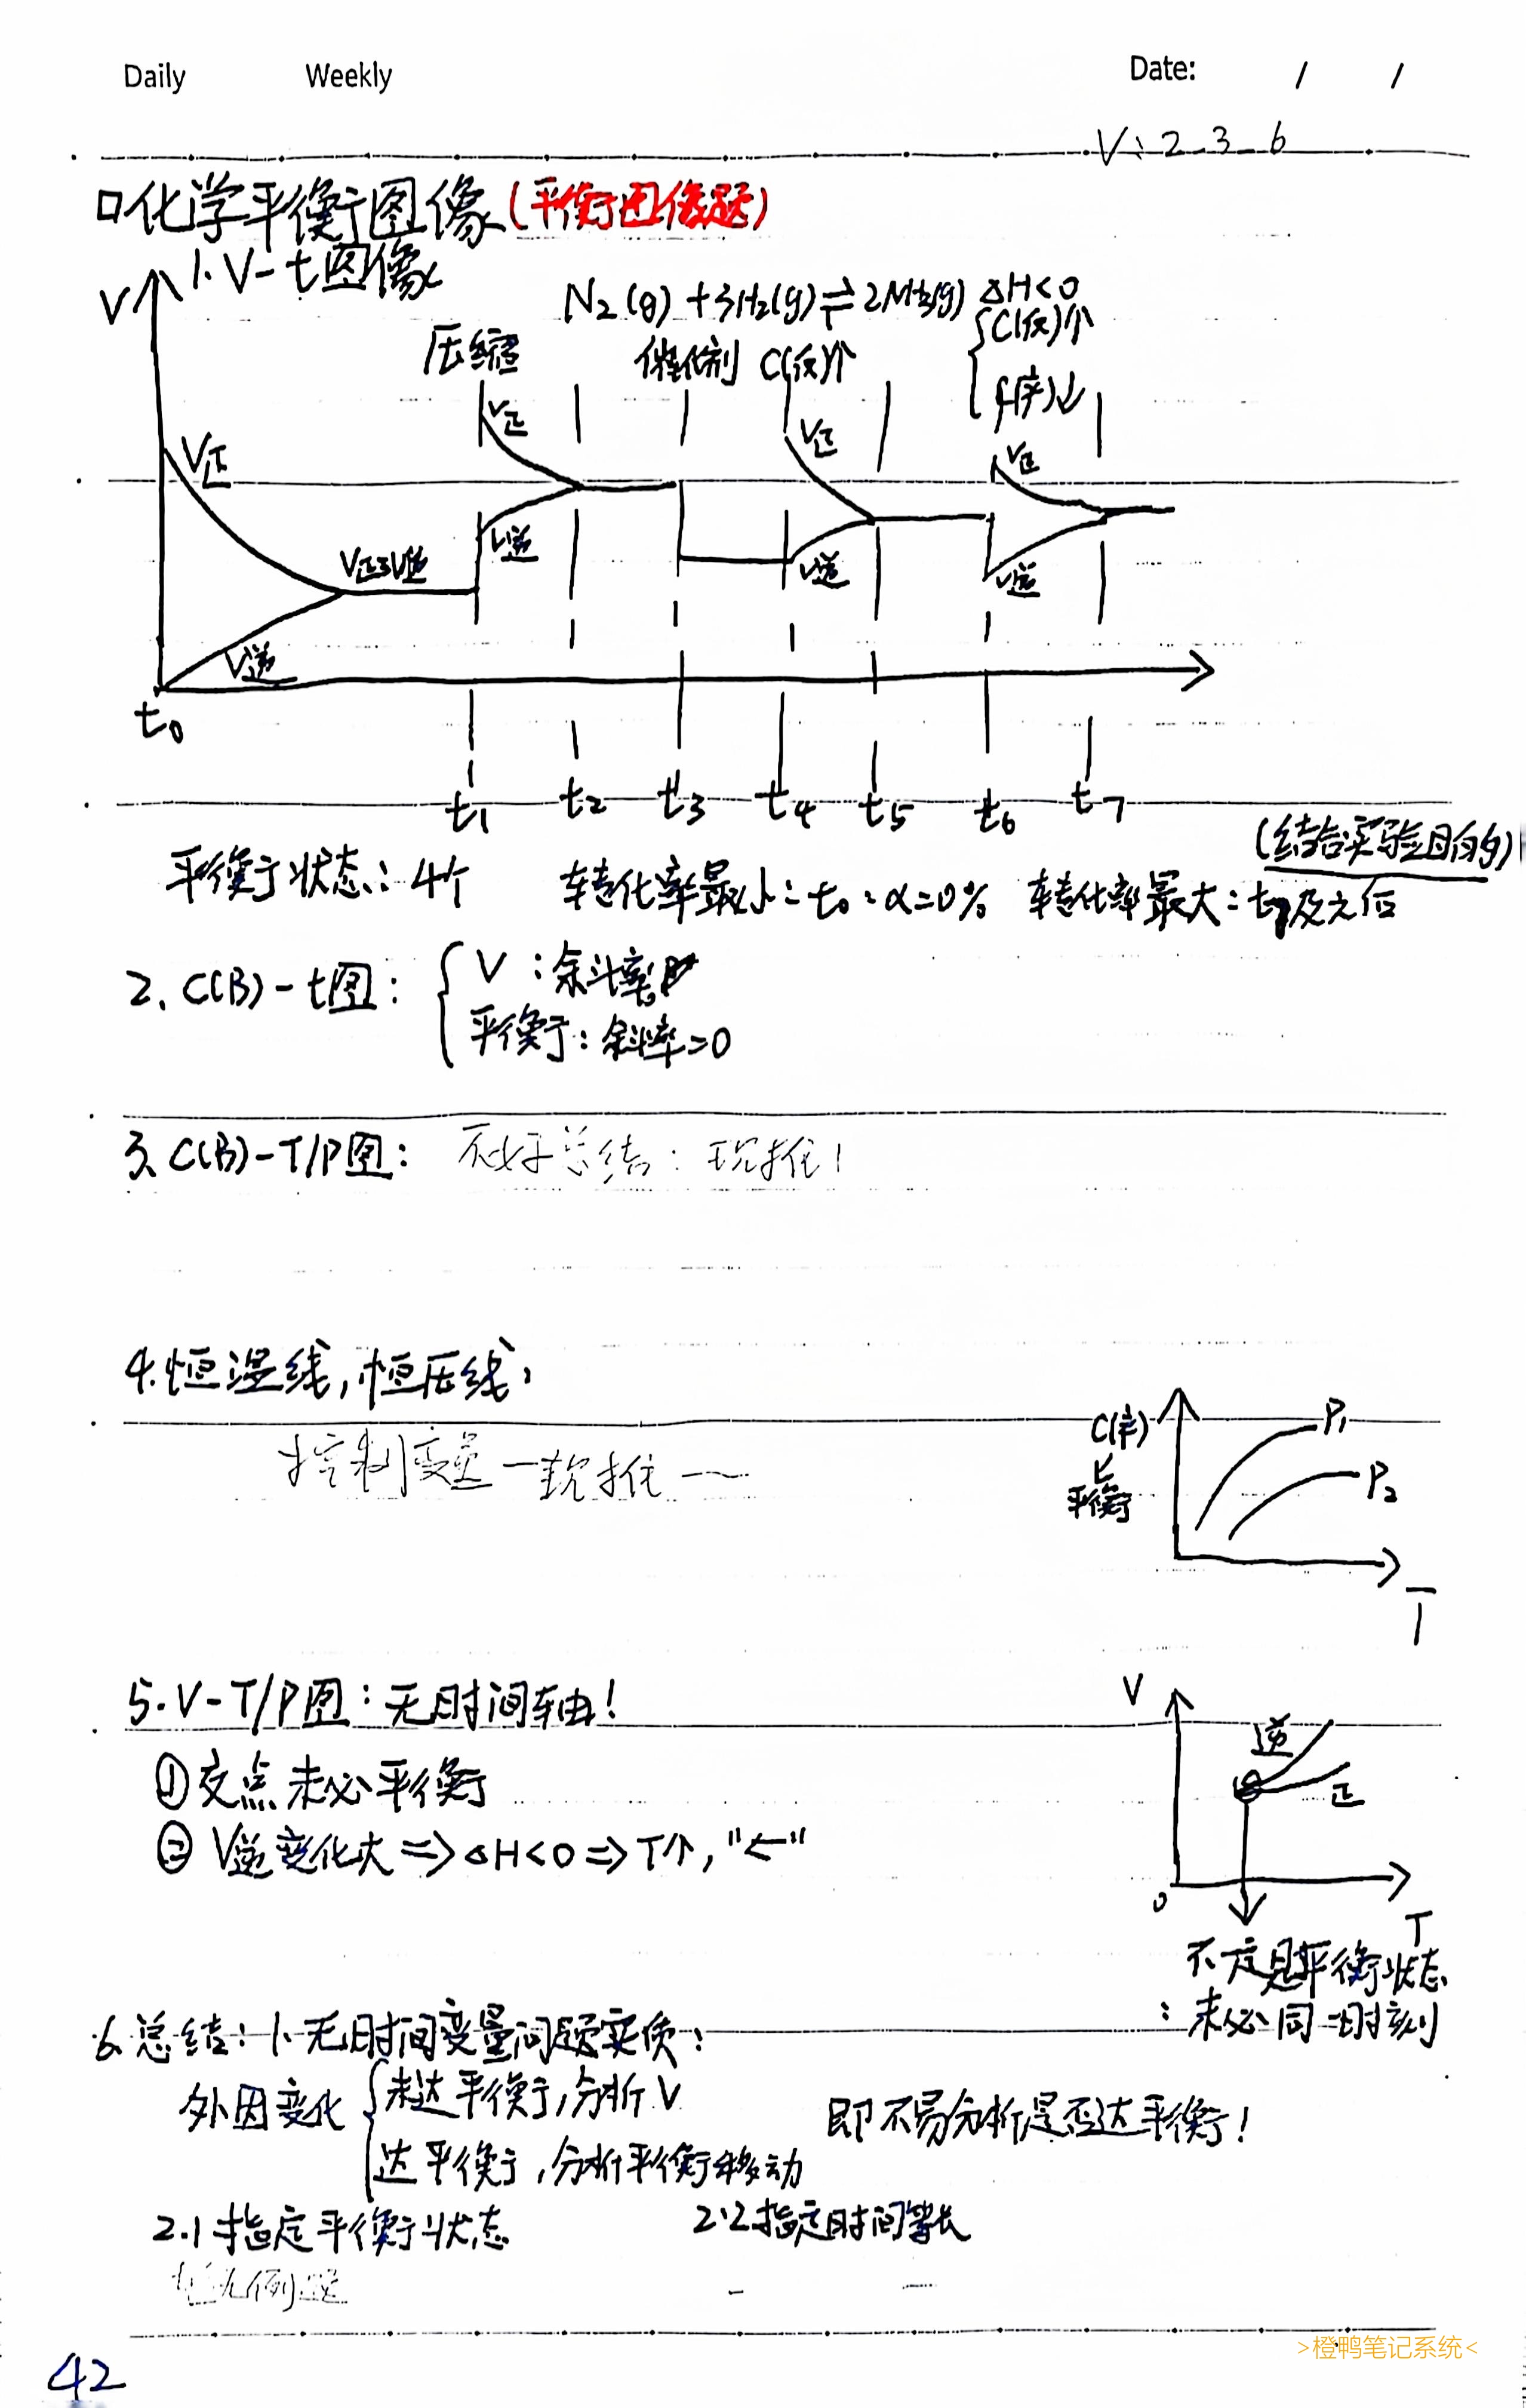 Daily Weekly Date: / /
V: 2-3-6
口化学平衡图像(平衡图像题)
1. V-t图像
N₂(g)+3H₂(g)⇌2NH₃(g) ΔH<0
V 压缩 催化剂 C(反)↑ {C(反)↑
C(产)↓
V正 V正 V正 V正
V正=V逆 V逆 V逆 V逆
V逆
t₀
t₁ t₂ t₃ t₄ t₅ t₆ t₇
(结合实验目的)
平衡状态:4个 转化率最小:t₀:α=0% 转化率最大:t₇及之后
2、C(B)-t图:{V:斜率
平衡:斜率=0
3、C(B)-T/P图: 不好总结:现推!
4.恒温线,恒压线:
控制变量一现推一
C(产) P₁
平衡 P₂
T
5.V-T/P图:无时间轴!
①交点未必平衡
②V逆变化大=>ΔH<0=>T↑,"←"
V
逆
正
0 T
不一定是平衡状态
:未必同一时刻
6.总结:1.无时间变量问题实质:
外因变化{未达平衡,分析V
达平衡,分析平衡移动
即不易分析是否达平衡!
2.1指定平衡状态 2.2指定时间
暂无例题
42
>橙鸭笔记系统<